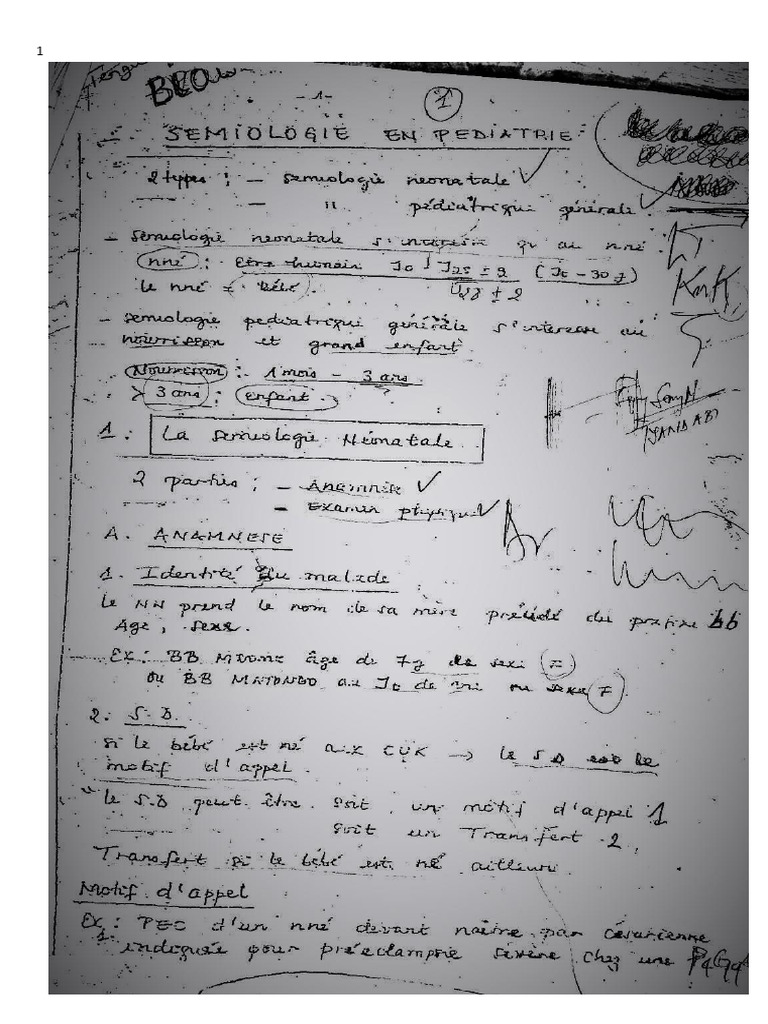 1
BLOW
-1-
1
SEMIOLOGIE EN PEDIATRIE :
2 types : - semiologie neonatale
- " pédiatrique générale
- semiologie neonatale s'interesse qu'au nné
nné : Etre humain J0 J28 ± 2 (J0 - 30 J)
le nné = bébé). J28 ± 2
KnK
- semiologie pediatrique générale s'interesse au
nourrisson et grand enfant
Nourrisson : 1 mois - 3 ans
> 3 ans : enfant
1 : La semiologie Néonatale
2 parties : - Anamnèse
- Examen physique
A. ANAMNESE
1. Identité du malade
le NN prend le nom de sa mère précédé du prefixe bb
Age, sexe.
Ex : BB âge de 7j de sexe F
ou BB MATONDO au J0 de vie ou sexe F
2. S.D
si le bébé est né aux CUK → le SD est le
motif d'appel.
le S.D peut être soit un motif d'appel 1
soit un Transfert 2
Transfert si le bébé est né ailleurs.
Motif d'appel
Ex : PEC d'un nné devant naître par césarienne
1. indiquée pour préeclampsie sévère chez une